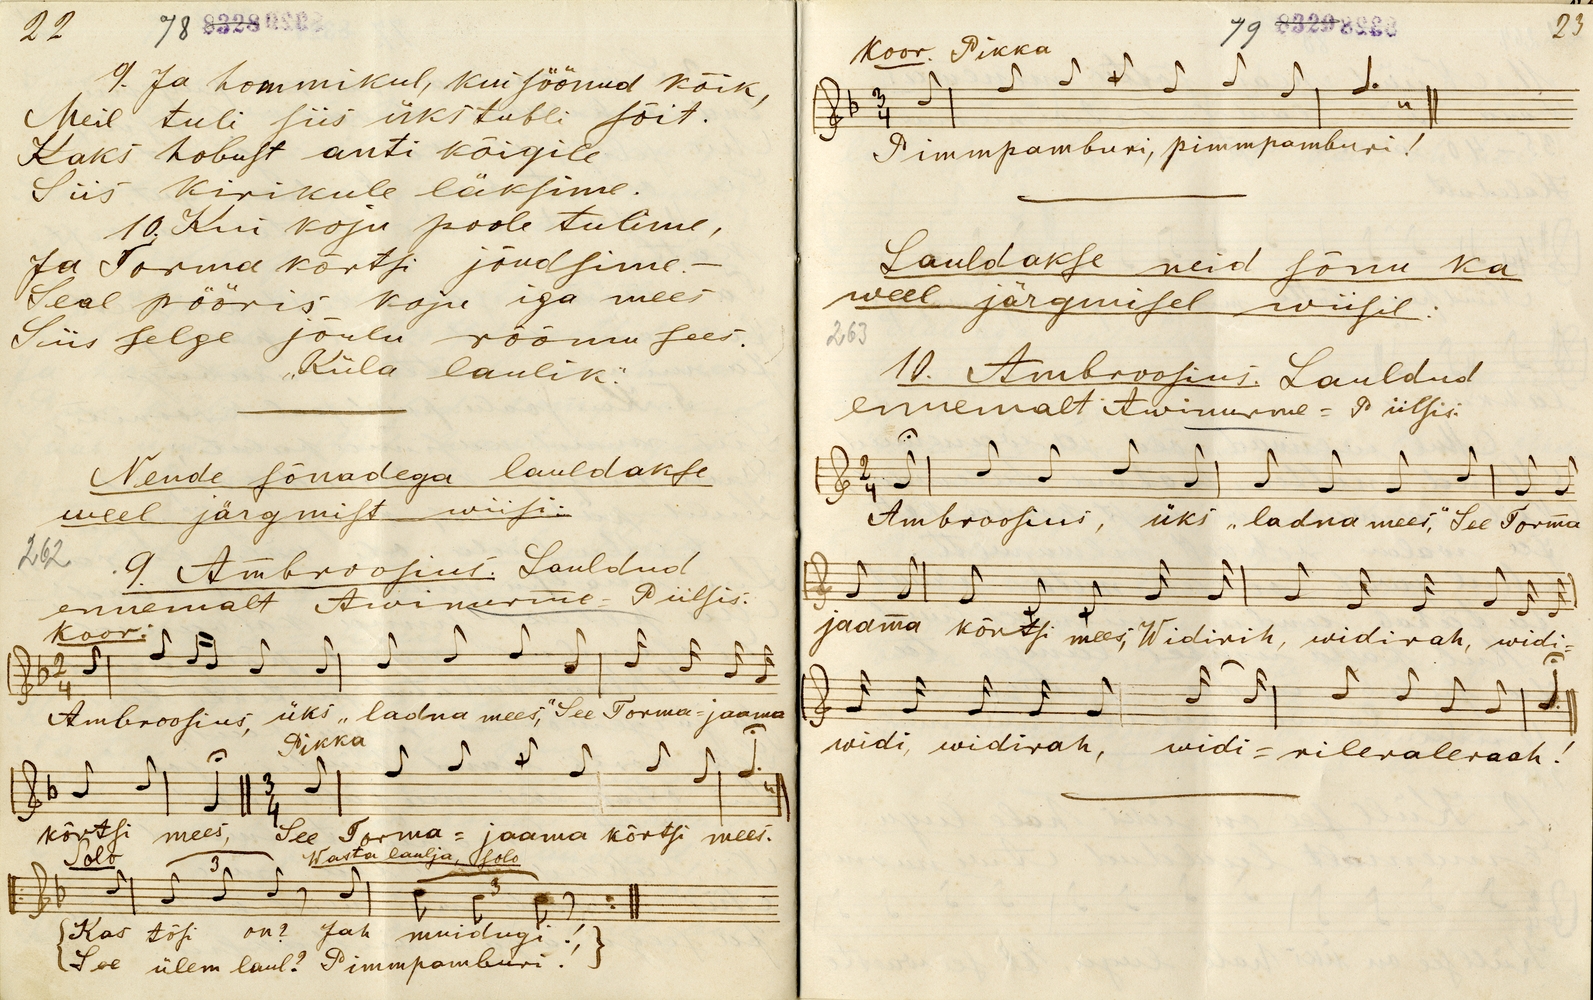 22 78 8328
9. Ja hommikul, kui söönud kõik,
Meil tuli siis üks tubli sõit.
Kaks hobust anti kõigile
Siis kirikule läksime.
10. Kui koju poole tulime,
Ja Torma kõrtsi jõudsime. –
Seal pööris koju iga mees
Siis selge jõulu rõõmu sees.
„Küla laulik".
Nende sõnadega lauldakse
weel järgmist wiisi:
262
9. Ambroosius. Lauldud
ennemalt Awinurme = Pülsis.
Koor:
Ambroosius, üks „ladna mees," See Torma=jaama
Pikka
kõrtsi mees, See Torma=jaama kõrtsi mees.
Solo Wasta laulja, solo
Kas tõsi on? Jah muidugi!,
See ülem laul? Pimmpamburi!
79 8329 23
Koor. Pikka
Pimmpamburi, pimmpamburi!
Lauldakse neid sõnu ka
weel järgmisel wiisil:
263
10. Ambroosius. Lauldud
ennemalt Awinurme = Pülsis.
Ambroosius, üks „ladna mees," See Torma
jaama kõrtsi mees, Widirih, widirah, widi=
widi, widirah, widi=rileraleraah!